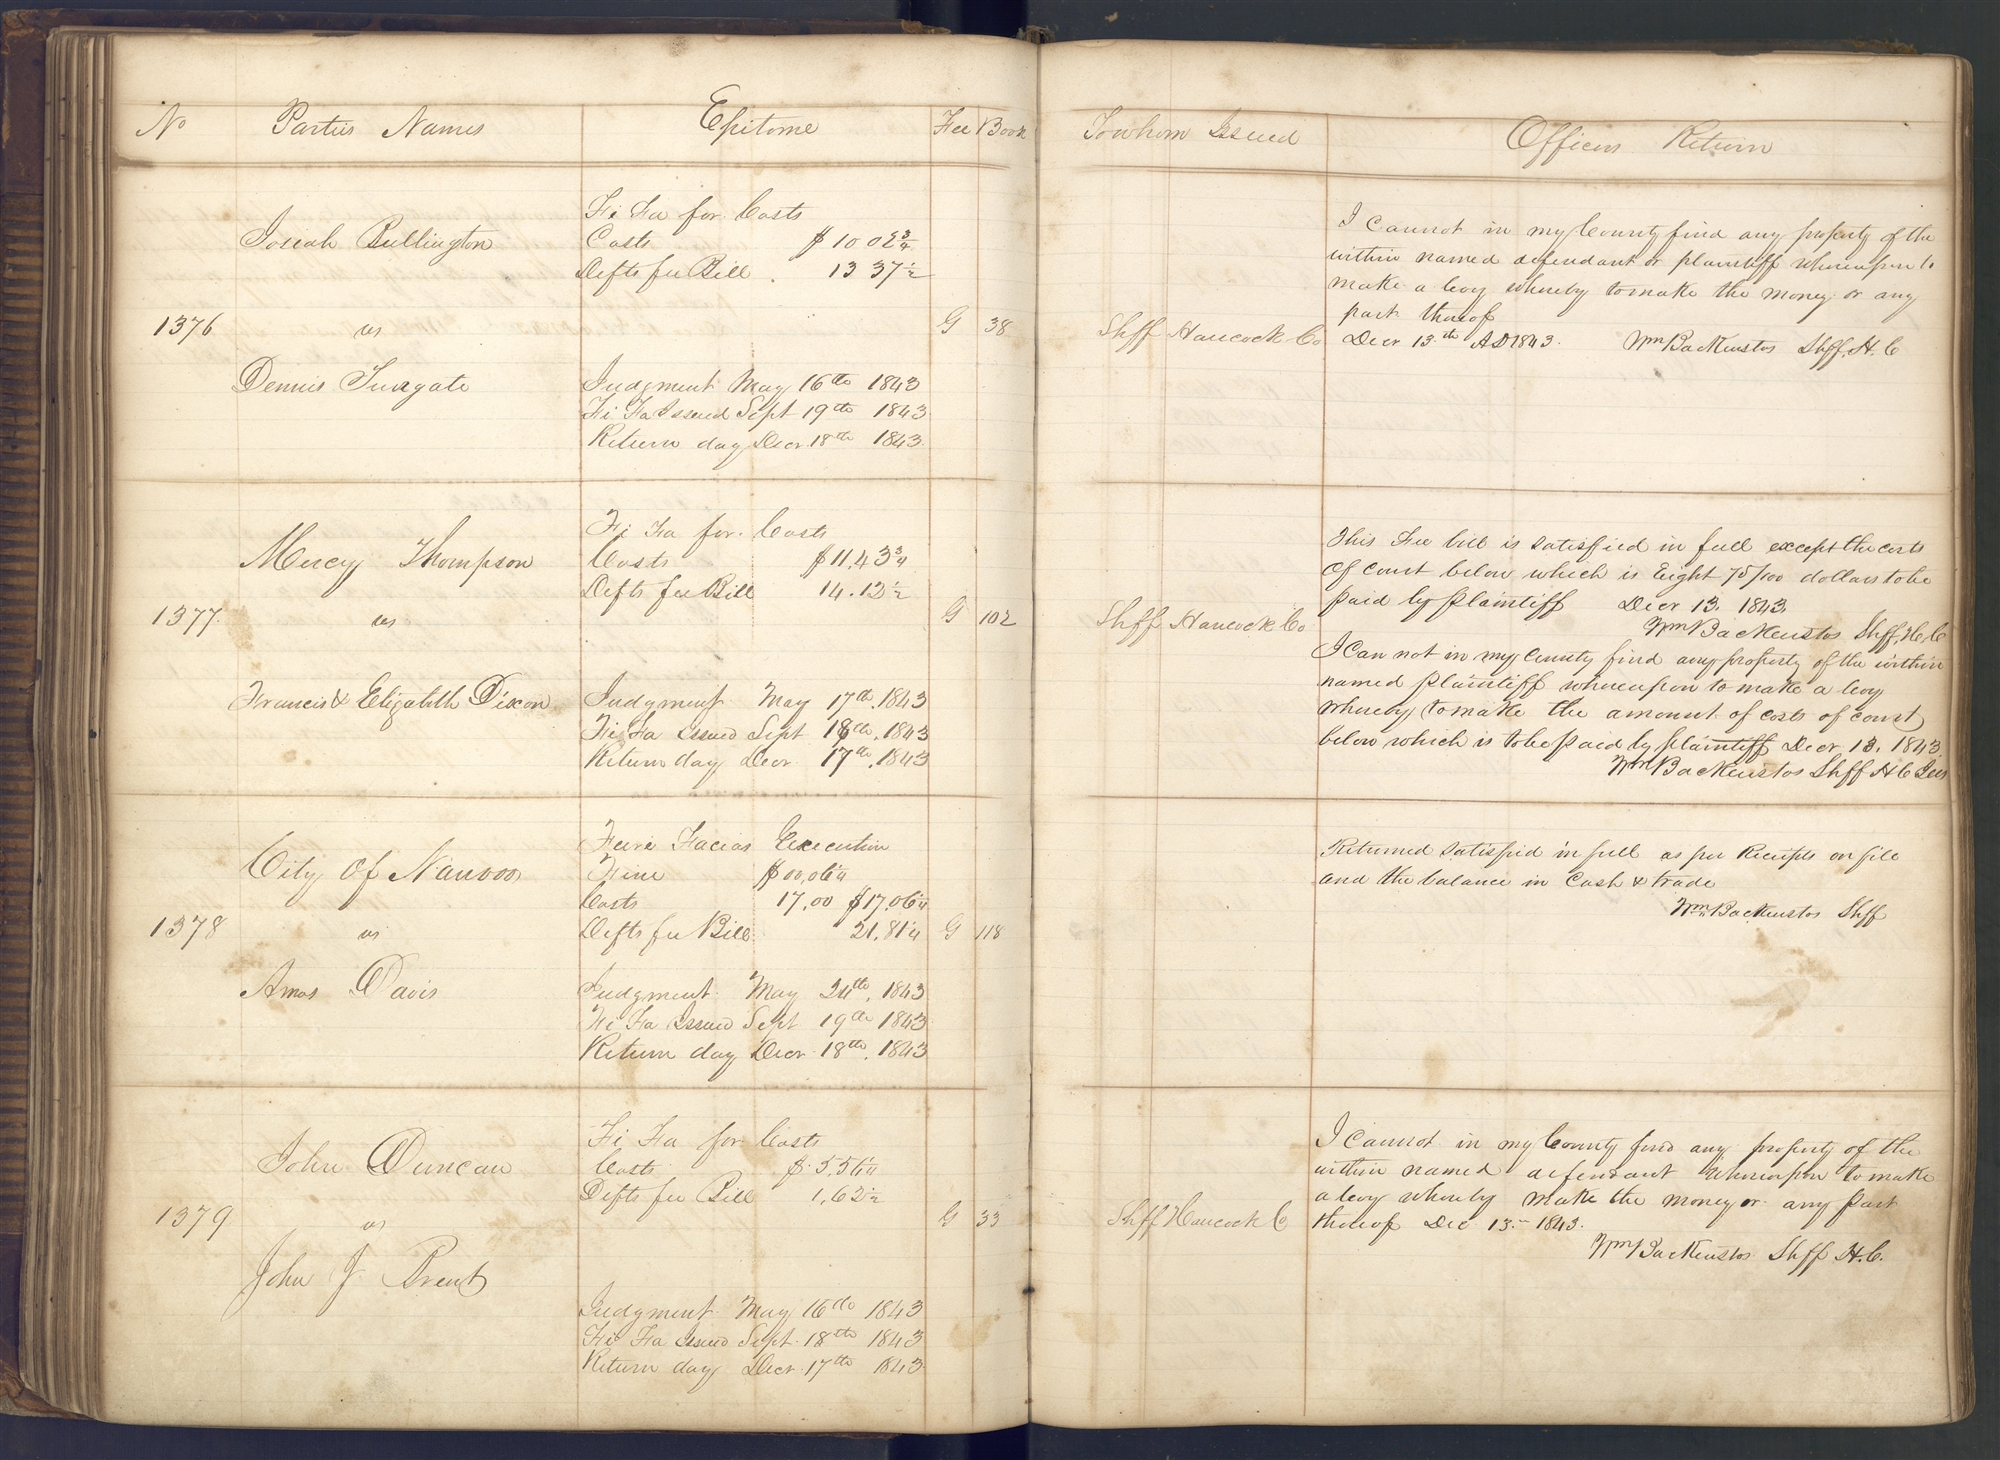 No Parties Names Epitome Fee Book
Josiah Bullington
vs
Dennis Fungate
1376
Fi Fa for Costs
Costs $10 02 3/4
Defts fee Bill 13 37 1/2
G 38
Judgment May 16th 1843
Fi Fa Issued Sept 19th 1843
Return day Decr 18th 1843
Mercy Thompson
1377 vs
Francis & Elizabeth Dixon
Fi Fa for Costs
Costs $11.43 3/4
Defts fee Bill 14.12 1/2
G 102
Judgment May 17th 1843
Fi Fa Issued Sept 18th 1843
Return day Decr 17th 1843
City Of Nauvoo
1378 vs
Amos Davis
Fieri Facias Execution
Fine $00,06 1/4
Costs 17,00 $17,06 1/4
Defts fee Bill 21,81 1/4 G 118
Judgment May 24th, 1843
Fi Fa Issued Sept 19th 1843
Return day Decr 18th, 1843
John Duncan
1379 vs
John J Brent
Fi Fa for Costs
Costs $5,56 1/4
Defts fee Bill 1,62 1/2
G 33
Judgment May 16th 1843
Fi Fa Issued Sept 18th 1843
Return day Decr 17th 1843
To whom Issued Officers Return
Shff Hancock Co
I Cannot in my County find any property of the
within named defendant or plaintiff whereupon to
make a levy whereby to make the money or any
part thereof
Decr 13th AD 1843. Wm Backenstos Shff, H. C
Shff Hancock Co
This Fee bill is satisfied in full except the costs
Of Court below which is Eight 75/100 dollars to be
paid by plaintiff Decr 13. 1843.
Wm Backenstos Shff, H C
I Can not in my County find any property of the within
named plaintiff whereupon to make a levy
whereby to make the amount of costs of court
below which is to be paid by plaintiff Decr, 13, 1843
Wm Backenstos Shff H C
Returned satisfied in full as per Receipts on file
and the balance in Cash & trade
Wm Backenstos Shff
Shff Hancock C
I Cannot in my County find any property of the
within named defendant whereupon to make
a levy whereby make the money or any part
thereof Dec 13. 1843.
Wm Backenstos Shff H. C.